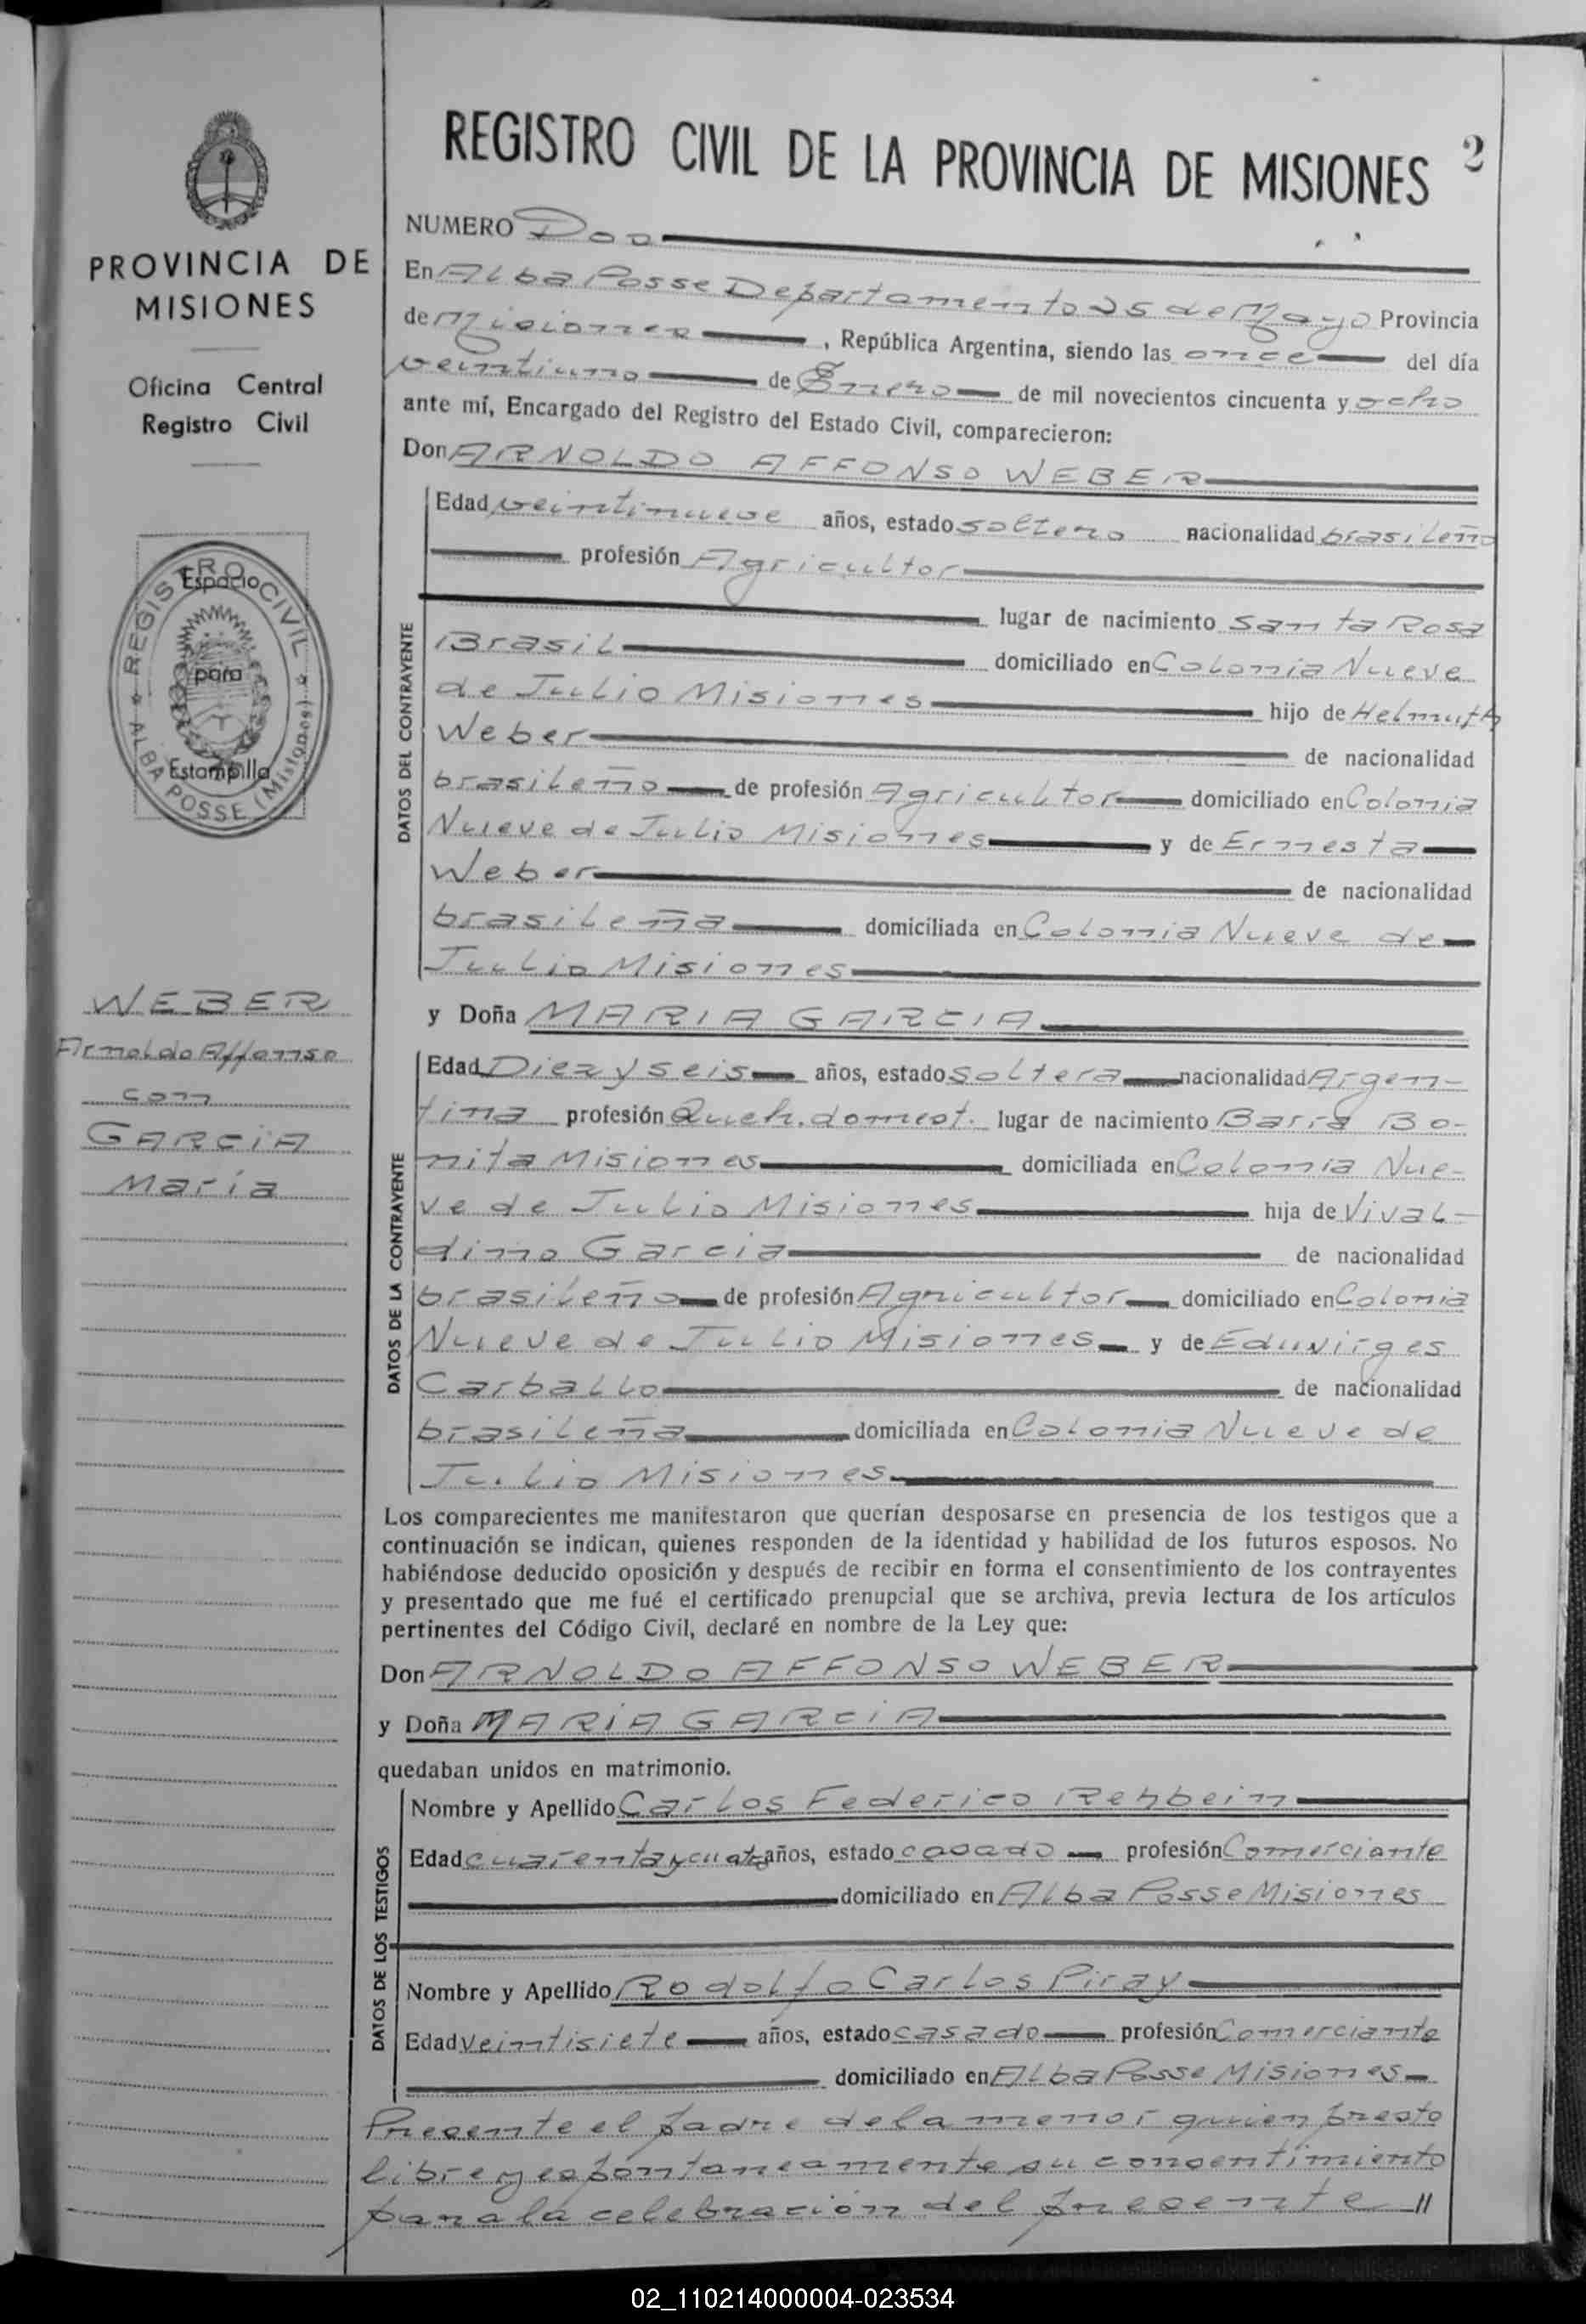 REGISTRO CIVIL DE LA PROVINCIA DE MISIONES 2
PROVINCIA DE
MISIONES
Oficina Central
Registro Civil
REGISTRO CIVIL
Espacio
para
Estampilla
ALBA POSSE (Misiones)
WEBER
Arnoldo Affonso
con
GARCIA
María
NUMERO Dos
En Alba Posse Departamento 25 de Mayo Provincia
de Misiones, República Argentina, siendo las once del día
veintiuno de Enero de mil novecientos cincuenta y ocho
ante mí, Encargado del Registro del Estado Civil, comparecieron:
Don ARNOLDO AFFONSO WEBER
DATOS DEL CONTRAYENTE
Edad veintinueve años, estado soltero nacionalidad brasileño
profesión Agricultor
lugar de nacimiento Santa Rosa
Brasil domiciliado en Colonia Nueve
de Julio Misiones hijo de Helmuth
Weber de nacionalidad
brasileño de profesión Agricultor domiciliado en Colonia
Nueve de Julio Misiones y de Ernesta
Weber de nacionalidad
brasileña domiciliada en Colonia Nueve de
Julio Misiones
y Doña MARIA GARCIA
DATOS DE LA CONTRAYENTE
Edad Diez y seis años, estado soltera nacionalidad Argen-
tina profesión Queh. domest. lugar de nacimiento Barra Bo-
nita Misiones domiciliada en Colonia Nue-
ve de Julio Misiones hija de Vival-
dino Garcia de nacionalidad
brasileño de profesión Agricultor domiciliado en Colonia
Nueve de Julio Misiones y de Eduvirges
Carballo de nacionalidad
brasileña domiciliada en Colonia Nueve de
Julio Misiones
Los comparecientes me manifestaron que querían desposarse en presencia de los testigos que a
continuación se indican, quienes responden de la identidad y habilidad de los futuros esposos. No
habiéndose deducido oposición y después de recibir en forma el consentimiento de los contrayentes
y presentado que me fué el certificado prenupcial que se archiva, previa lectura de los artículos
pertinentes del Código Civil, declaré en nombre de la Ley que:
Don ARNOLDO AFFONSO WEBER
y Doña MARIA GARCIA
quedaban unidos en matrimonio.
DATOS DE LOS TESTIGOS
Nombre y Apellido Carlos Federico Rehbein
Edad cuarenta y cuatro años, estado casado profesión Comerciante
domiciliado en Alba Posse Misiones
Nombre y Apellido Rodolfo Carlos Piray
Edad veintisiete años, estado casado profesión Comerciante
domiciliado en Alba Posse Misiones
Presente el padre de la menor quien presto
libre y espontaneamente su consentimiento
para la celebración del presente //
02_110214000004-023534